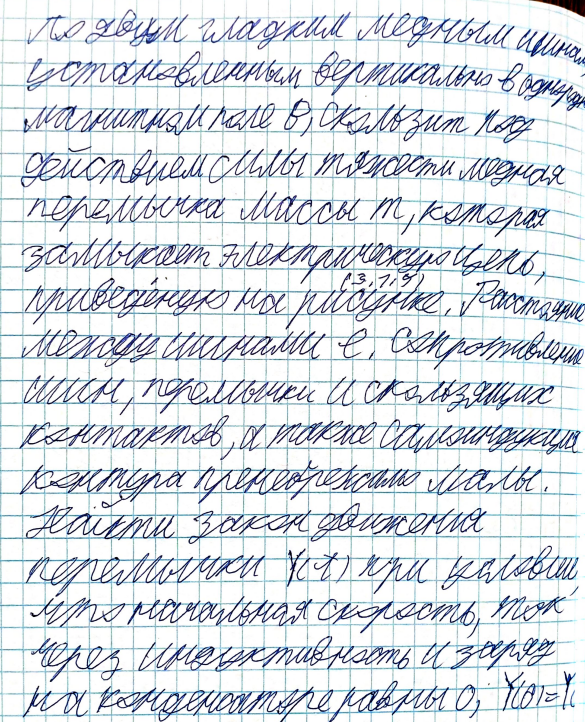 По двум гладким медным шинам
установленным вертикально в однородн
магнитном поле B, скользит под
действием силы тяжести медная
перемычка массы m, которая
замыкает электрическую цепь,
приведённую на рисунке. (3,7,5) Расстояние
между шинами l. Сопротивление
шин, перемычки и скользящих
контактов, а также самоиндукция
контура пренебрежимо малы.
Найти закон движения
перемычки Y(t) при условии,
что начальная скорость, ток
через индуктивность и заряд
на конденсаторе равны 0; Y(0)=Y